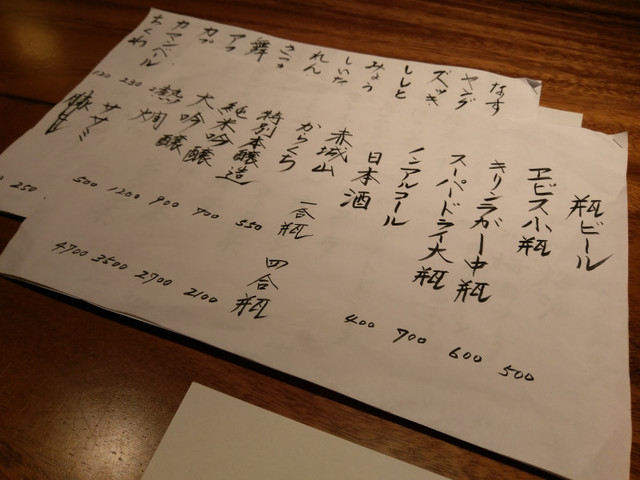 瓶ビール
エビス小瓶 500
キリンラガー中瓶 600
スーパードライ大瓶 700
ノンアルコール 400
日本酒
赤城山
からくち 一合瓶 四合瓶
特別本醸造 550 2100
純米吟醸 700 2700
大吟醸 900 3500
1200 4700
熱燗 500
なす
ヤング
ズッキ
ししと
みょう
しいた
れん
舞
アス
カブ
カマンベール
ちくわ
ササミ
120
230
250